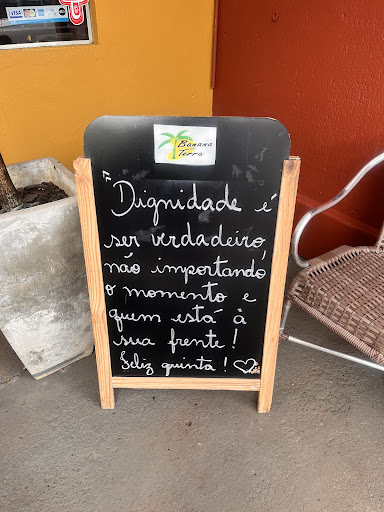 VISA
Banana
Terra
"Dignidade é
ser verdadeiro,
não importando
o momento e
quem está à
sua frente!
Feliz quinta!